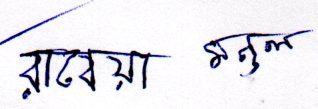 রাবেয়া মন্ডল